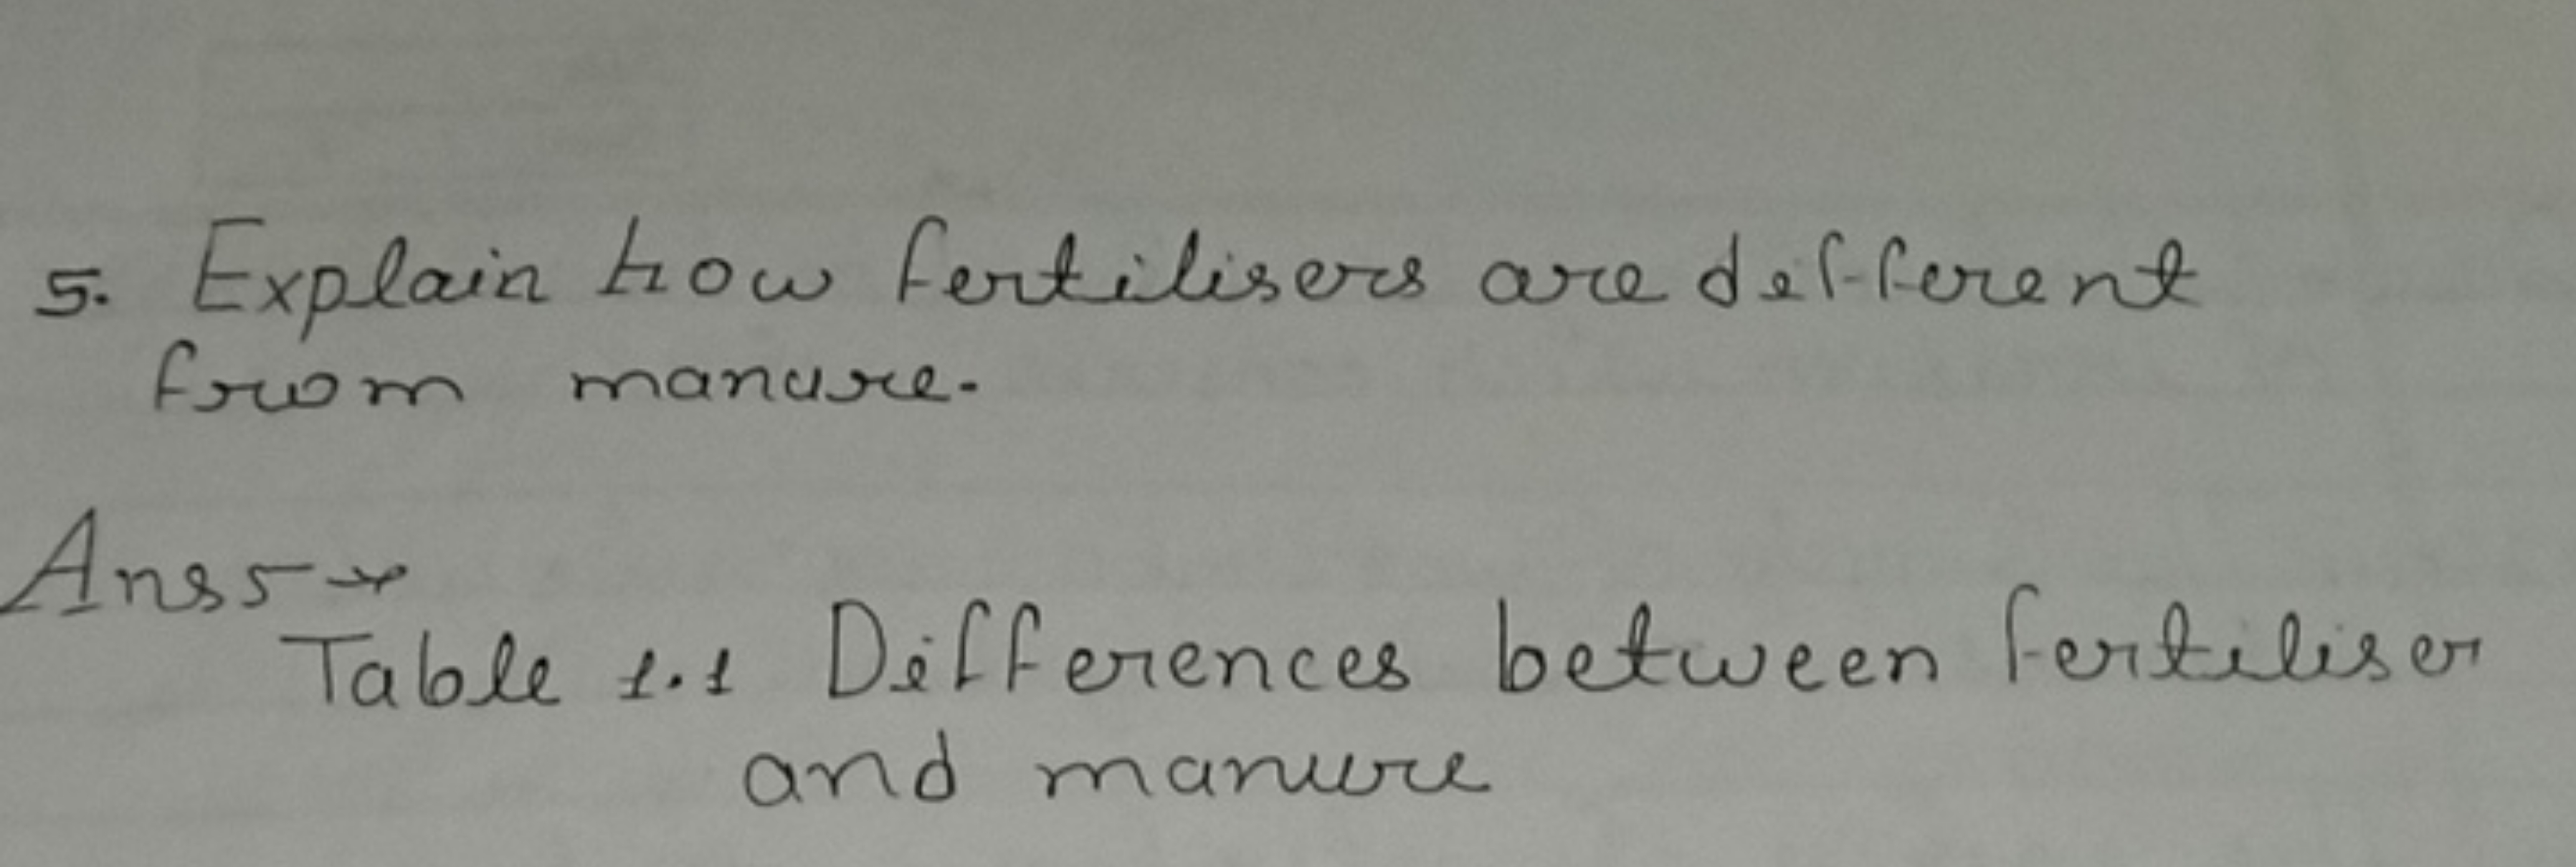 5. Explain how fertilisers are different
from manure.
Ans5→
Table 1.1 Differences between fertiliser
and manure